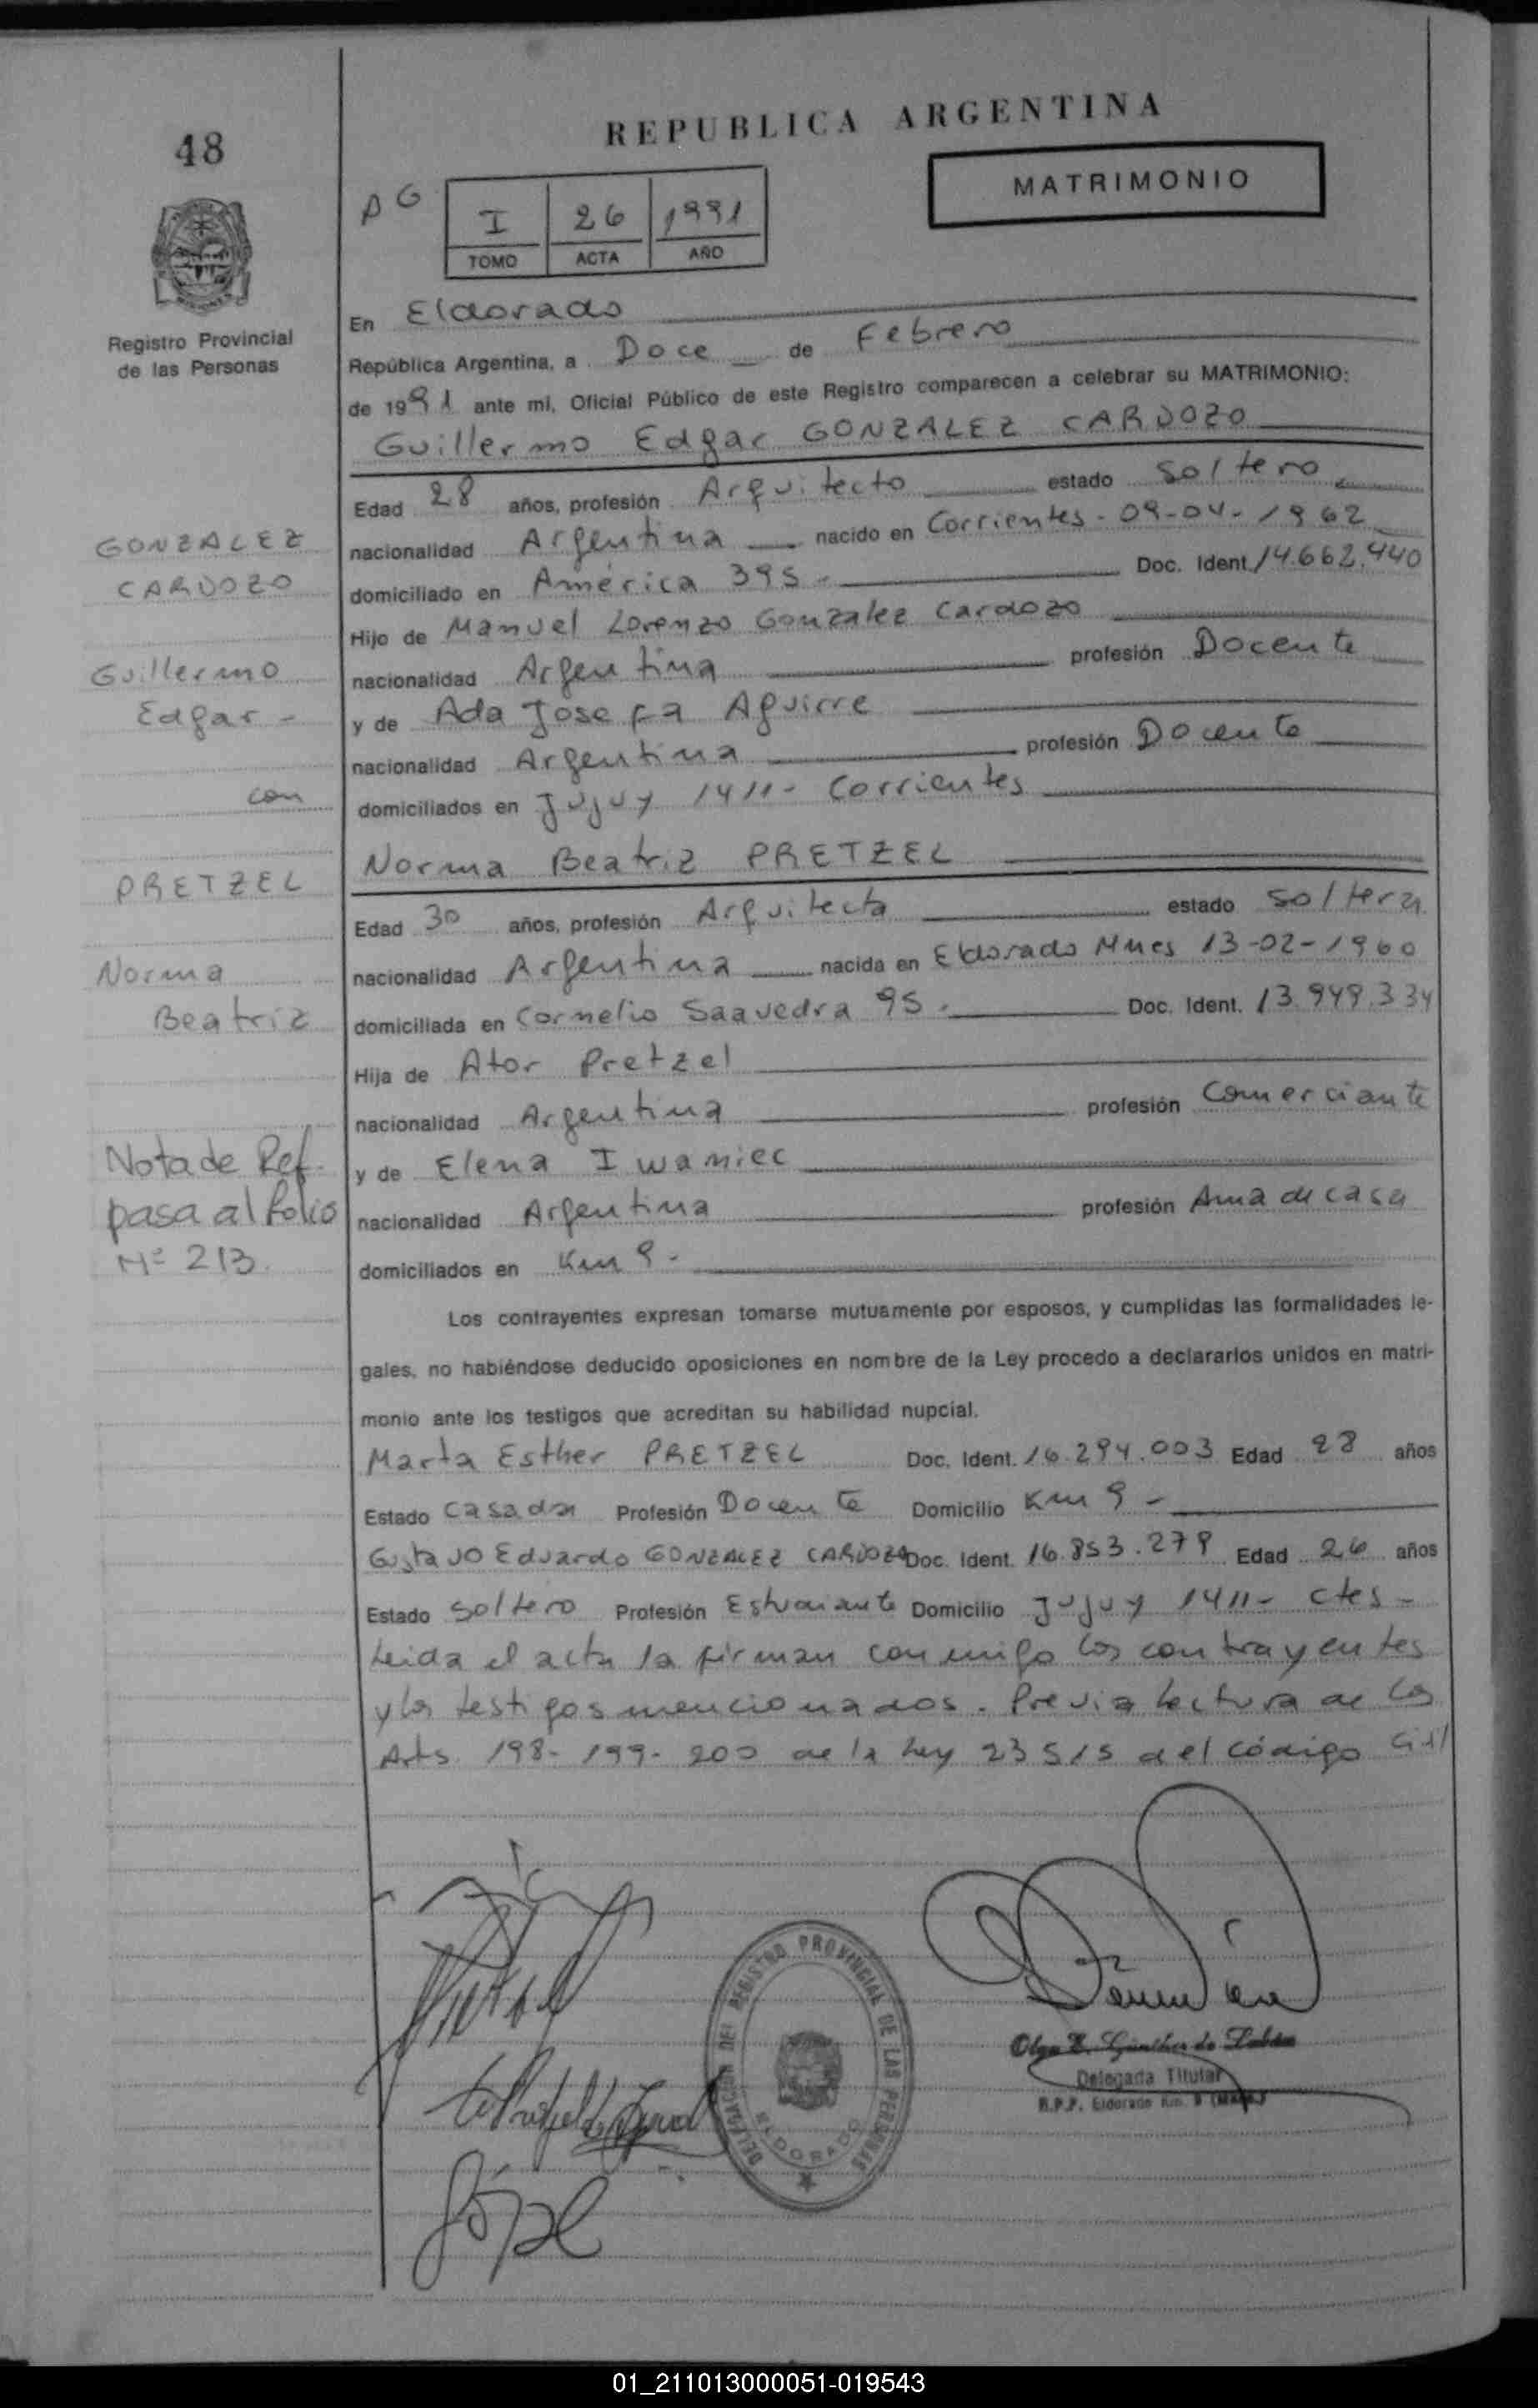 48
REPUBLICA ARGENTINA
MATRIMONIO
AG
I 26 1991
TOMO ACTA AÑO
Registro Provincial
de las Personas
En Eldorado
República Argentina, a Doce de Febrero
de 1991 ante mi, Oficial Público de este Registro comparecen a celebrar su MATRIMONIO:
Guillermo Edgar GONZALEZ CARDOZO
Edad 28 años, profesión Arquitecto estado Soltero
nacionalidad Argentina nacido en Corrientes - 09-04-1962
domiciliado en América 395 - Doc. Ident. 14.662.440
Hijo de Manuel Lorenzo Gonzalez Cardozo
nacionalidad Argentina profesión Docente
y de Ada Josefa Aguirre
nacionalidad Argentina profesión Docente
domiciliados en Jujuy 1411- Corrientes
Norma Beatriz PRETZEL
Edad 30 años, profesión Arquitecta estado Soltera
nacionalidad Argentina nacida en Eldorado Mnes 13-02-1960
domiciliada en Cornelio Saavedra 95. Doc. Ident. 13.949.334
Hija de Ator Pretzel
nacionalidad Argentina profesión Comerciante
y de Elena Iwaniec
nacionalidad Argentina profesión Ama de casa
domiciliados en Km 9 -
GONZALEZ
CARDOZO
Guillermo
Edgar -
con
PRETZEL
Norma
Beatriz
Nota de Ref.
pasa al folio
Nº 213.
Los contrayentes expresan tomarse mutuamente por esposos, y cumplidas las formalidades le-
gales, no habiéndose deducido oposiciones en nombre de la Ley procedo a declararlos unidos en matri-
monio ante los testigos que acreditan su habilidad nupcial.
Marta Esther PRETZEL Doc. Ident. 16.294.003 Edad 28 años
Estado Casada Profesión Docente Domicilio Km 9 -
Gustavo Eduardo GONZALEZ CARDOZO Doc. Ident. 16.853.279 Edad 26 años
Estado Soltero Profesión Estudiante Domicilio Jujuy 1411- Ctes -
Leida el acta la firman conmigo los contrayentes
y los testigos mencionados. Previa lectura de los
Arts. 198- 199- 200 de la Ley 23515 del código Civil
DELEGACION DEL REGISTRO PROVINCIAL DE LAS PERSONAS
ELDORADO
Olga E. Günther de
Delegada Titular
R.P.P. Eldorado Km. 9
01_211013000051-019543